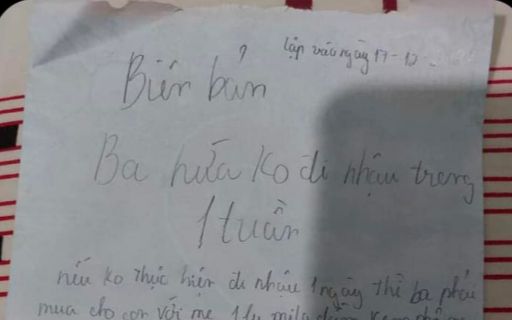 lập vào ngày 17-12
Biên bản
Ba hứa ko đi nhậu trong
1 tuần
nếu ko thực hiện đi nhậu 1 ngày thì ba phải
mua cho con với mẹ 1 ly